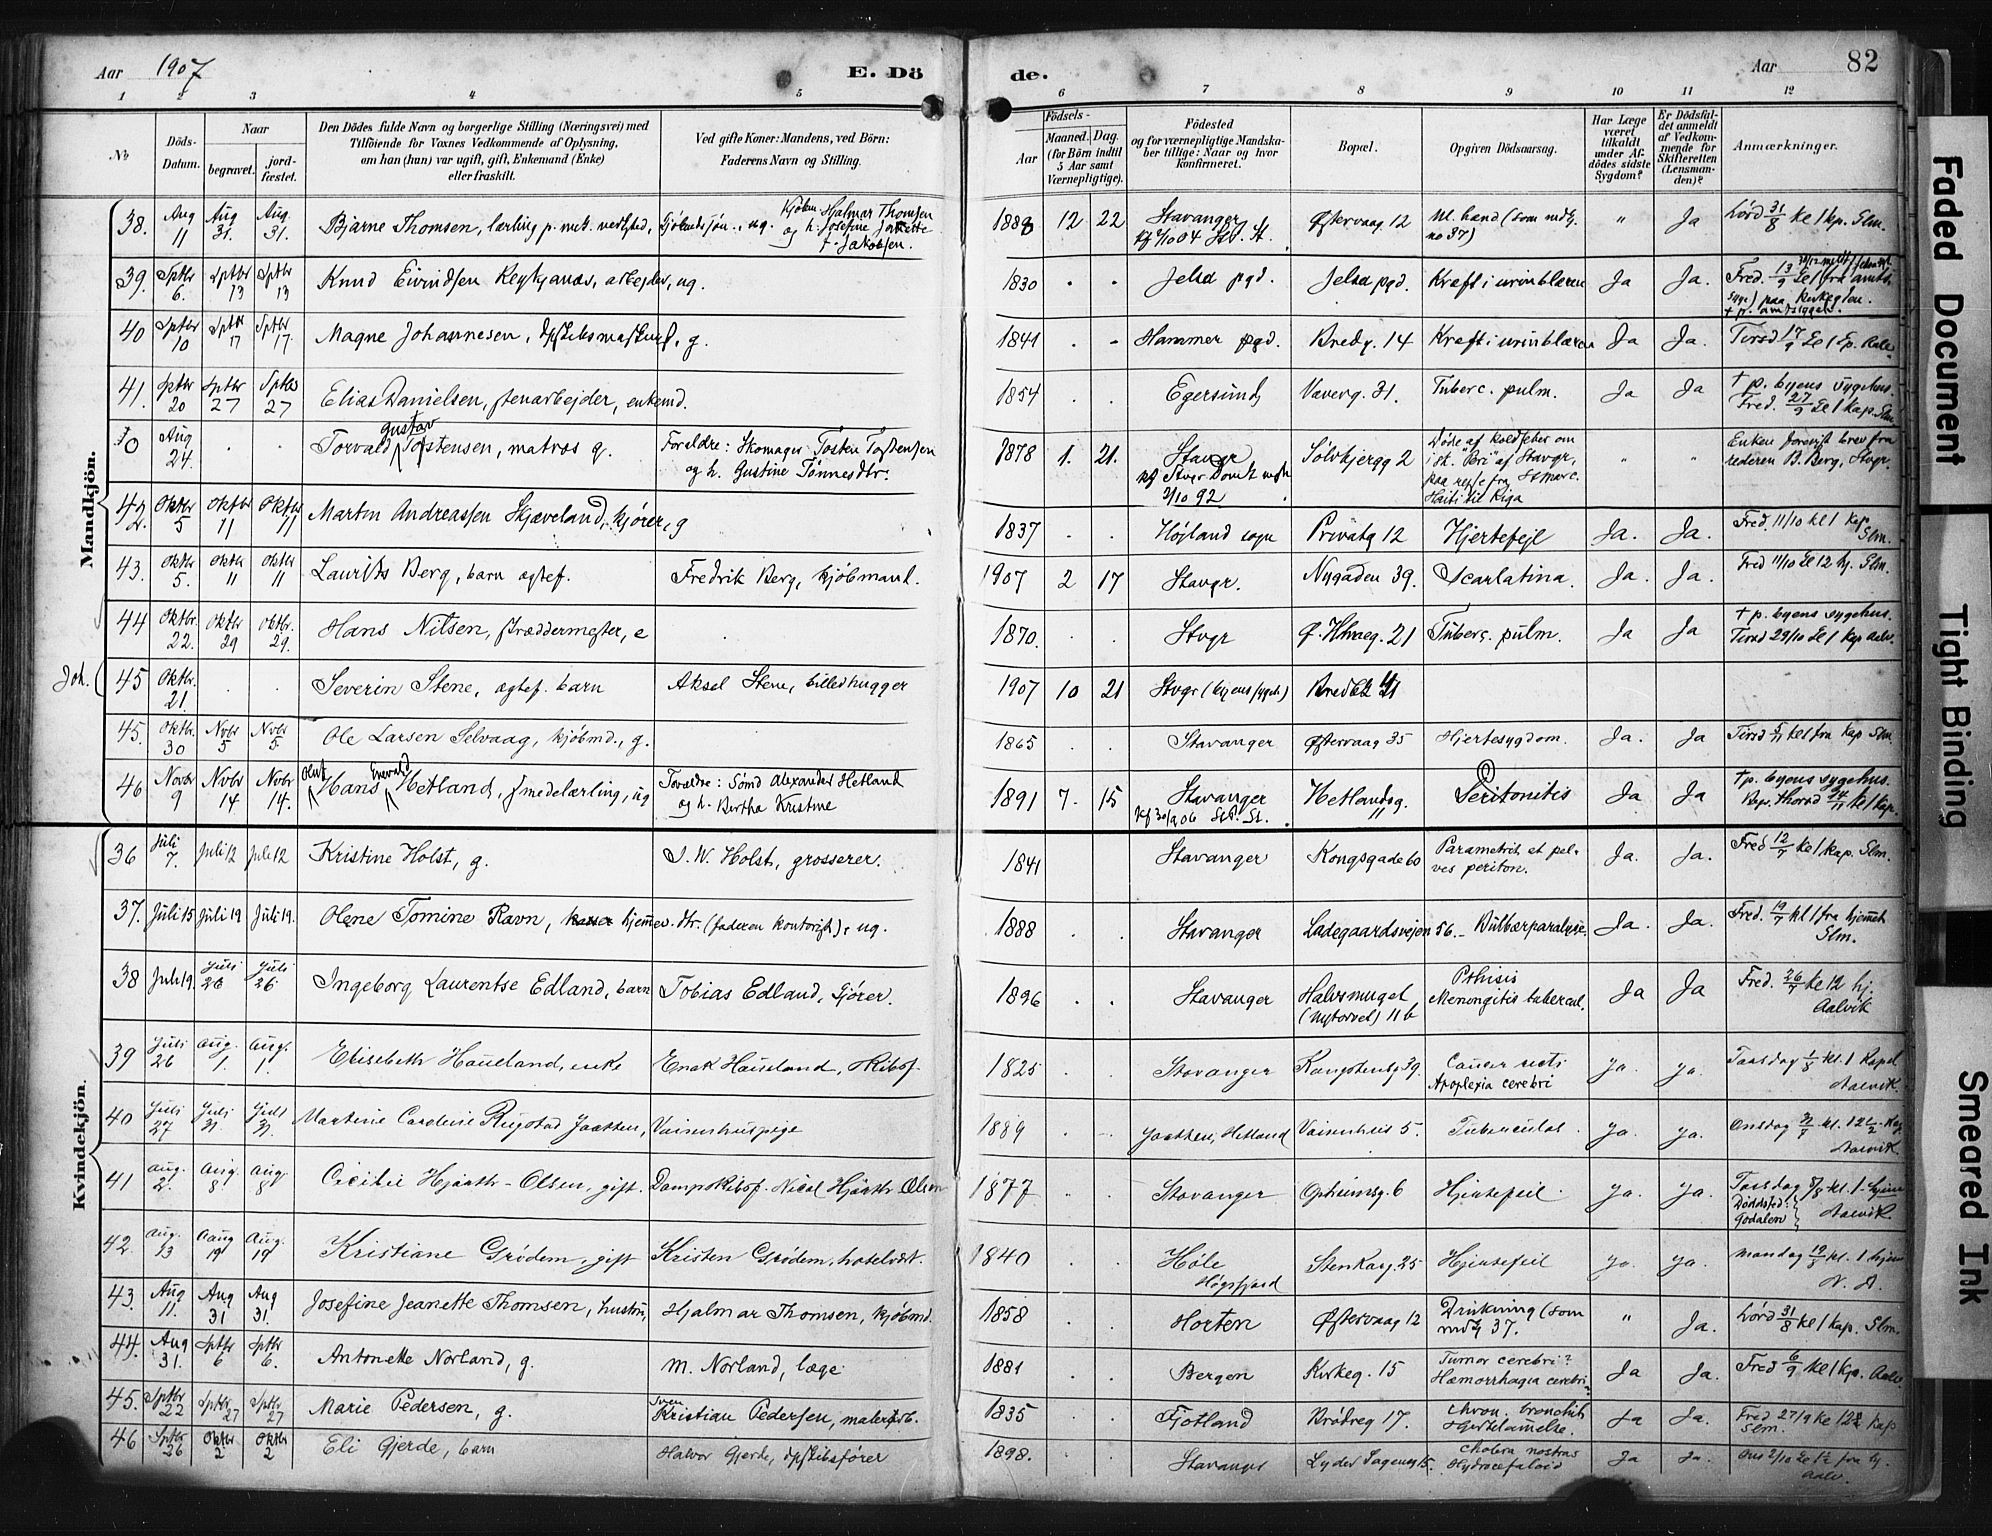 Aar 1907 E. Dö de. Aar 82
1 2 3 4 5 6 7 8 9 10 11 12
No
Döds-Datum.
Naar
begravet.
jordfæstet.
Den Dödes fulde Navn og borgerlige Stilling (Næringsvei) med
Tilföiende for Voxnes Vedkommende af Oplysning,
om han (hun) var ugift, gift, Enkemand (Enke)
eller fraskilt.
Ved gifte Koner: Mandens, ved Börn:
Faderens Navn og Stilling.
Födsels-
Aar
Maaned. Dag.
(for Börn indtil
5 Aar samt
Værnepligtige).
Födested
og for værnepligtige Mandska-
ber tillige: Naar og hvor
konfirmeret.
Bopæl.
Opgiven Dödsaarsag.
Har Læge
været
tilkaldt
under Af-
dödes sidste
Sygdom?
Er Dödsfal-
det anmeldt
af Vedkom-
mende for
Skifteretten
(Lensman-
den)?
Anmærkninger.
Mandkjön.
38. Aug 11 Aug 31. Aug. 31. Bjarne Thomsen, lærling p. mek. verksted, ug. Kjøbm. Hjalmar Thomsen og h. Josefine Jeanette f. Jakobsen. 1888 12 22 Stavanger Østervaag 12 " Ja Lørd 31/8 kl 1 kp. Slm.
39. Sptbr 6. Sptbr 13 Sptbr 13 Knud Eivindsen Reykjanæs, arbejder, ug. 1830 . . Jelsa pgd. Jelsa pgd. Kræft i urinblæren Ja Ja. Fred. 13/9
40 Sptbr 10 Sptbr 17 Sptbr 17. Magne Johannesen, g. 1841 . . Hammer pgd. Bredg. 14 Kræft i urinblæren Ja Ja. Tirsd 17/9
41. Sptbr 20 Sptbr 27 Sptbr 27 Elias Danielsen, stenarbejder, enkemd. 1854 . . Egersund Væverg. 31. Tuberc. pulm. Ja Ja † p. byens sygehus. Fred. 27/9 kl 1 kap. Slm
Aug 24. . . Torvald Gustav Tostensen, matros g. Foreldre: Skomager Tosten Tostensen og h. Gustine Tønnesdtr. 1878 1. 21. Stavgr Kf Stvgr Domk 2/10 92 Sølvbjergg 2 Døde af koldfeber om i sk. "Bri" af Stavgr, paa rejse fra St Marc. Haiti til Riga " " Enken forevist brev fra rederen B. Berg, Stvgr.
42. Oktbr 5 Oktbr 11 Oktbr 11 Martin Andreassen Skjæveland, kjører, g 1837 . . Højland sogn Privatg 12 Hjertefejl Ja. Ja. Fred. 11/10 kl 1 Kap. Slm.
43. Oktbr 5. Oktbr 11 Oktbr 11 Laurits Berg, barn ægtef. Fredrik Berg, kjøbmand. 1907 2 17 Stavgr. Nygaden 39. Scarlatina. Ja. Ja. Fred 11/10 kl 12 hj. Slm.
44 Oktbr. 22. Oktbr 29 Oktbr. 29. Hans Nilsen, skræddermester, e . 1870. . . Stvgr 21 Tuberc. pulm. Ja Ja † p. byens sygehus. Tirsd 29/10 kl 1 Kap Aalv.
Joh.
45 Oktbr. 21. . . Severin Stene, ægtef. barn Aksel Stene, billedhugger 1907 10 21 Stvgr (byens sygeh)
45. Oktbr. 30 Novbr 5 Novbr 5. Ole Larsen Selvaag, kjøbmd., g. 1865 . . Stavanger Østervaag 35 Hjertesygdom. Ja. Ja Tirsd 5/11 kl 1 fra Kap Slm.
46 Novbr 9 Novbr 14 Novbr 14. Olaf Hans Enevald Hetland, smedelærling, ug Foreldre: Sømd Alexander Hetland og h. Bertha Kristine 1891 7. 15 Stavanger Kf 30/9 06 St P. St. Hetlandsg. 11 Peritonitis Ja Ja † p. byens sygehus. Torsd 14/11 kl 1 kap.
Kvindekjön.
36 Juli 7. Juli 12 Juli 12 Kristine Holst, g. I. W. Holst, grosserer. 1841 Stavanger Kongsgade 60 Parametrit et pelves periton. Ja. Ja. Fred 12/7 kl 1 kap. Slm.
37. Juli 15 Juli 19 Juli 19. Olene Tomine Ravn, hjemmev. dtr. (faderen kontorist), ug. 1888 . . Stavanger Ladegaardsvejen 56. Bulbærparalyse. Ja. Ja. Fred. 19/7 kl 1 fra hjemmet Slm.
38 Juli 19. Juli 26 Juli 26. Ingeborg Laurentse Edland, barn Tobias Edland, kjører. 1896 . . Stavanger (nytorvet) 11 b Pthisis Menongitis tubercul. Ja Ja Fred. 26/7 kl 12 hj. Aalvik
39 Juli 26 Aug. 1. Aug. 1. Elisebeth Haueland, enke Enok Haueland, Skibsf. 1825 . . Stavanger Kongstensg 39. Cancer recti Apoplexia cerebri Ja. Ja. Torsdag 1/8 kl. 1 Kapel Aalvik.
40 Juli 27 Juli 31. Juli 31. Martine Caroline Rugstad Jaatten, Vaisenhuspige 1889 . . Jaatten, Hetland Vaisenhus 5. Tuberculos. Ja. Ja. Onsdag 31/7 kl. 12½ Kap Aalvik.
41 Aug. 2. Aug. 8. Aug. 8 Cicilie Hjorth-Olsen, gift. Dampskibsf. Nicol Hjorth Olsen 1877 . . Stavanger Opheimsg. 6 Hjertefeil. Ja. Ja. Torsdag 8/8 kl. 1. hjem Dødssted: Godalen Aalvik.
42. Aug. 13 Aug 19 Aug. 19 Kristiane Grødem, gift Kristen Grødem, hotelvært. 1840 . . Høle Høgsfjord Stenkarg. 25 Hjertefeil Ja. Ja. Mandag 19/8 kl. 1 hjem
43. Aug 11. Aug 31 Aug 31. Josefine Jeanette Thomsen, hustru, Hjalmar Thomsen, kjøbmd. 1858 Horten Østervaag 12 Drukning (som mdkj 37. " Ja. Lørd 31/8 kl 1 kap. Slm.
44. Aug 31. Sptbr 6 Sptbr 6. Antonette Norland, g. M. Norland, læge. 1881 . . Bergen Kirkeg. 15 Tumor cerebri? Hæmorrhagia cerebri? Ja Ja. Fred 6/9 kl 1 kp. Aalv.
45. Sptbr 22 Sptbr 27 Sptbr 27 Marie Pedersen, g. Sven Kristian Pedersen, 1835 . . Fjotland Brødreg 17. Chron. bronchit Hjertelammelse. Ja Ja. Fred 27/9 kl 12½ Kap Slm.
46 Sptbr 26 Oktbr 2 Oktbr 2 Eli Gjerde, barn Halvor Gjerde, dpskibsfører 1898. . . Stavanger Lyder Sagensg 15. Cholera nostras Hydrocefaloid Ja Ja. Ons 2/10 fra hj. Aalv.
Faded Document
Tight Binding
Smeared Ink